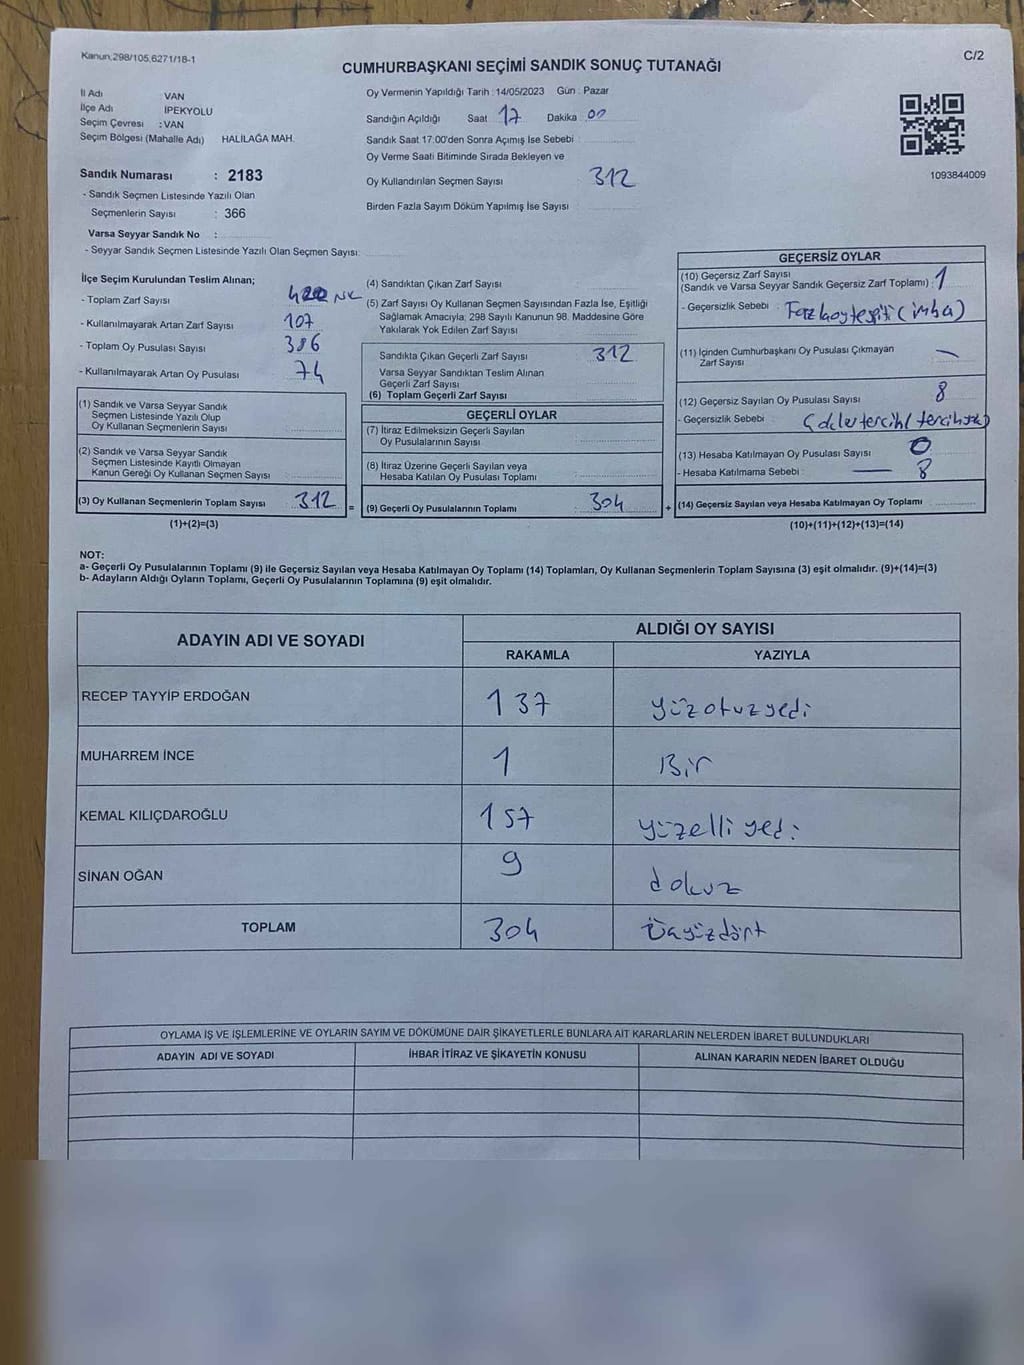 Kanun:298/105,6271/18-1
C/2
CUMHURBAŞKANI SEÇİMİ SANDIK SONUÇ TUTANAĞI
İl Adı VAN
İlçe Adı İPEKYOLU
Seçim Çevresi :VAN
Seçim Bölgesi (Mahalle Adı) HALİLAĞA MAH.
Oy Vermenin Yapıldığı Tarih : 14/05/2023 Gün : Pazar
Sandığın Açıldığı Saat 17 Dakika 00
Sandık Saat 17:00'den Sonra Açımış İse Sebebi :
Oy Verme Saati Bitiminde Sırada Bekleyen ve
Oy Kullandırılan Seçmen Sayısı : 312
Birden Fazla Sayım Döküm Yapılmış İse Sayısı
1093844009
Sandık Numarası : 2183
- Sandık Seçmen Listesinde Yazılı Olan
Seçmenlerin Sayısı : 366
Varsa Seyyar Sandık No :
- Seyyar Sandık Seçmen Listesinde Yazılı Olan Seçmen Sayısı:
İlçe Seçim Kurulundan Teslim Alınan;
- Toplam Zarf Sayısı 420
- Kullanılmayarak Artan Zarf Sayısı 107
- Toplam Oy Pusulası Sayısı 386
- Kullanılmayarak Artan Oy Pusulası 74
(1) Sandık ve Varsa Seyyar Sandık
Seçmen Listesinde Yazılı Olup
Oy Kullanan Seçmenlerin Sayısı
(2) Sandık ve Varsa Seyyar Sandık
Seçmen Listesinde Kayıtlı Olmayan
Kanun Gereği Oy Kullanan Seçmen Sayısı
(3) Oy Kullanan Seçmenlerin Toplam Sayısı 312
(1)+(2)=(3)
(4) Sandıktan Çıkan Zarf Sayısı
(5) Zarf Sayısı Oy Kullanan Seçmen Sayısından Fazla İse, Eşitliği
Sağlamak Amacıyla, 298 Sayılı Kanunun 98. Maddesine Göre
Yakılarak Yok Edilen Zarf Sayısı
Sandıkta Çıkan Geçerli Zarf Sayısı 312
Varsa Seyyar Sandıktan Teslim Alınan
Geçerli Zarf Sayısı
(6) Toplam Geçerli Zarf Sayısı
GEÇERLİ OYLAR
(7) İtiraz Edilmeksizin Geçerli Sayılan
Oy Pusulalarının Sayısı
(8) İtiraz Üzerine Geçerli Sayılan veya
Hesaba Katılan Oy Pusulası Toplamı
= (9) Geçerli Oy Pusulalarının Toplamı 304 +
GEÇERSİZ OYLAR
(10) Geçersiz Zarf Sayısı
(Sandık ve Varsa Seyyar Sandık Geçersiz Zarf Toplamı) : 1
- Geçersizlik Sebebi : (imha)
(11) İçinden Cumhurbaşkanı Oy Pusulası Çıkmayan
Zarf Sayısı —
(12) Geçersiz Sayılan Oy Pusulası Sayısı 8
- Geçersizlik Sebebi :
(13) Hesaba Katılmayan Oy Pusulası Sayısı 0
- Hesaba Katılmama Sebebi : — 8
(14) Geçersiz Sayılan veya Hesaba Katılmayan Oy Toplamı
(10)+(11)+(12)+(13)=(14)
NOT:
a- Geçerli Oy Pusulalarının Toplamı (9) ile Geçersiz Sayılan veya Hesaba Katılmayan Oy Toplamı (14) Toplamları, Oy Kullanan Seçmenlerin Toplam Sayısına (3) eşit olmalıdır. (9)+(14)=(3)
b- Adayların Aldığı Oyların Toplamı, Geçerli Oy Pusulalarının Toplamına (9) eşit olmalıdır.
ADAYIN ADI VE SOYADI
ALDIĞI OY SAYISI
RAKAMLA YAZIYLA
RECEP TAYYİP ERDOĞAN 137 yüzotuzyedi
MUHARREM İNCE 1 Bir
KEMAL KILIÇDAROĞLU 157 yüzelli yedi
SİNAN OĞAN 9 dokuz
TOPLAM 304 Üçyüzdört
OYLAMA İŞ VE İŞLEMLERİNE VE OYLARIN SAYIM VE DÖKÜMÜNE DAİR ŞİKAYETLERLE BUNLARA AİT KARARLARIN NELERDEN İBARET BULUNDUKLARI
ADAYIN ADI VE SOYADI
İHBAR İTİRAZ VE ŞİKAYETİN KONUSU
ALINAN KARARIN NEDEN İBARET OLDUĞU